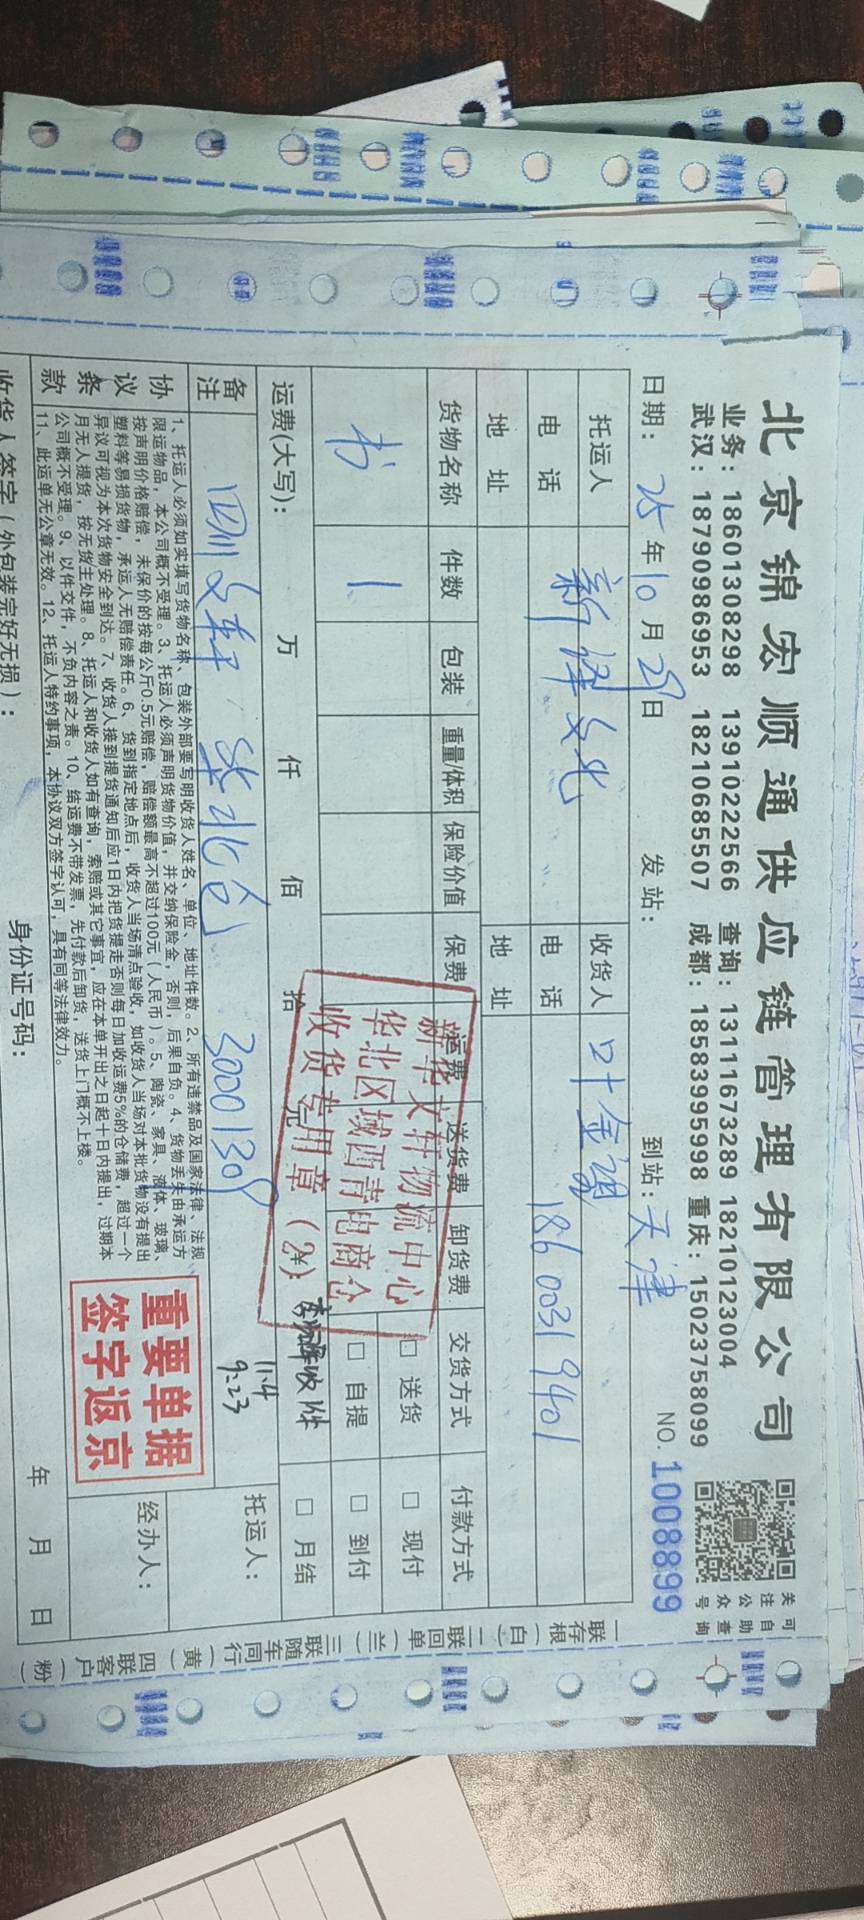 北京锦宏顺通供应链管理有限公司
业务：18601308298 13910222566 查询：13111673289 18210123004
武汉：18790986953 18210685507 成都：18583995998 重庆：15023758099
关注公众号
可自助查询
日期：25年10月29日 发站： 到站：天津 NO. 1008899
托运人 新泽文化 收货人 叶金强
电话 电话 18600319401
地址 地址
货物名称 件数 包装 重量/体积 保险价值 保费 运费 送货费 卸货费 交货方式 付款方式
书 1 □送货 □现付
□自提 □到付
运费(大写)： 万 仟 佰 拾 元 □月结
新华文轩物流中心
华北区域西青电商仓
收货专用章（2*）
收件
11.4
9:23
备注 四川文轩 华北仓 30001309
托运人：
经办人：
协议条款
1、托运人必须如实填写货物名称、包装外部要写明收货人姓名、单位、地址件数。2、所有违禁品及国家法律、法规
限运物品，本公司概不受理。3、托运人必须声明货物价值，并交纳保险金，否则，后果自负。4、货物丢失由承运方
按声明价格赔偿，未保价的按每公斤0.5元赔偿，赔偿额最高不超过100元（人民币）。5、陶瓷、家具、液体、玻璃、
塑料等易损货物，承运人无赔偿责任。6、货到指定地点后，收货人当场清点验收，如收货人当场对本批货物没有提出
异议可视为本次货物安全到达。7、收货人接到提货通知后应1日内把货提走否则每日加收运费5%的仓储费，超过一个
月无人提货，按无货主处理。8、托运人和收货人如有查询，索赔或其它事宜，应在本单开出之日起十日内提出，过期本
公司概不受理。9、以件交件，不负内容之责。10、结运费不带发票，先付款后卸货，送货上门概不上楼。
11、此运单无公章无效。12、托运人特约事项，本协议双方签字认可，具有同等法律效力。
重要单据
签字返京
收货人签字（外包装完好无损）： 身份证号码： 年 月 日
一联存根（白）二联回单（兰）三联随车同行（黄）四联客户（粉）